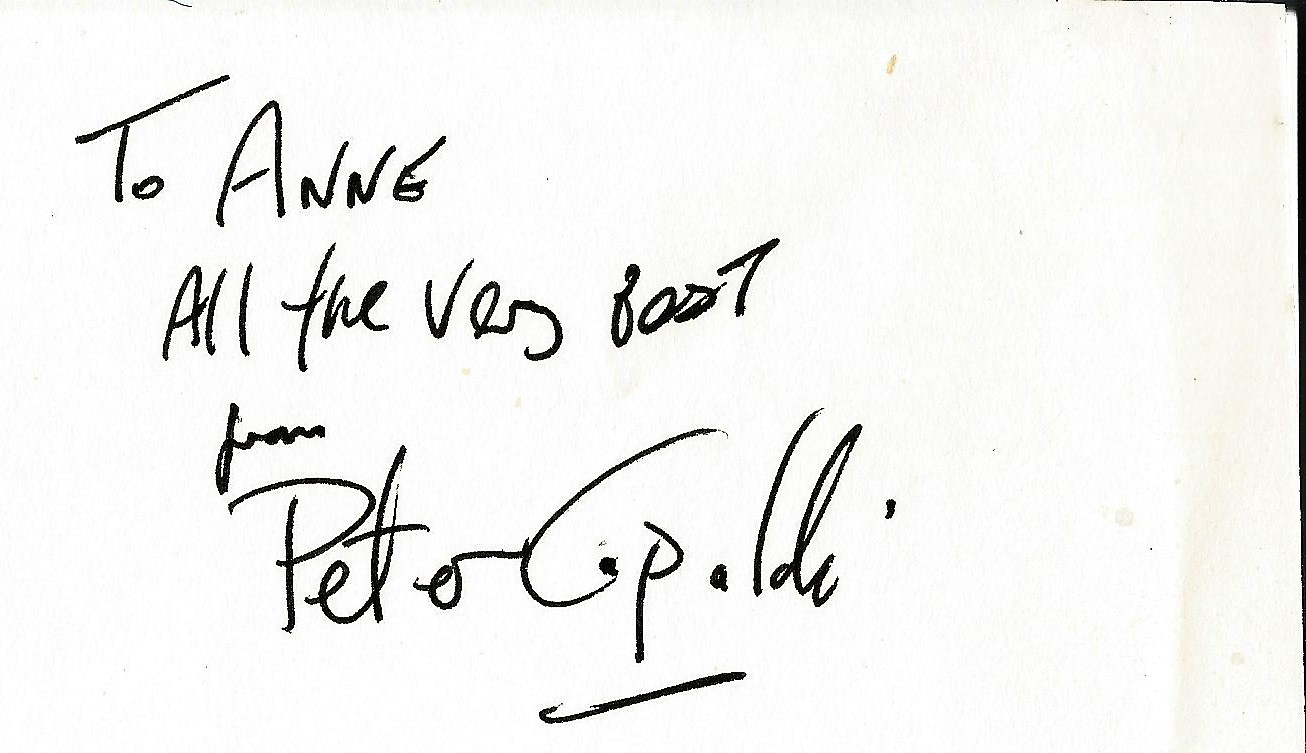 To ANNE
All the Very BEST
from
Peter Capaldi